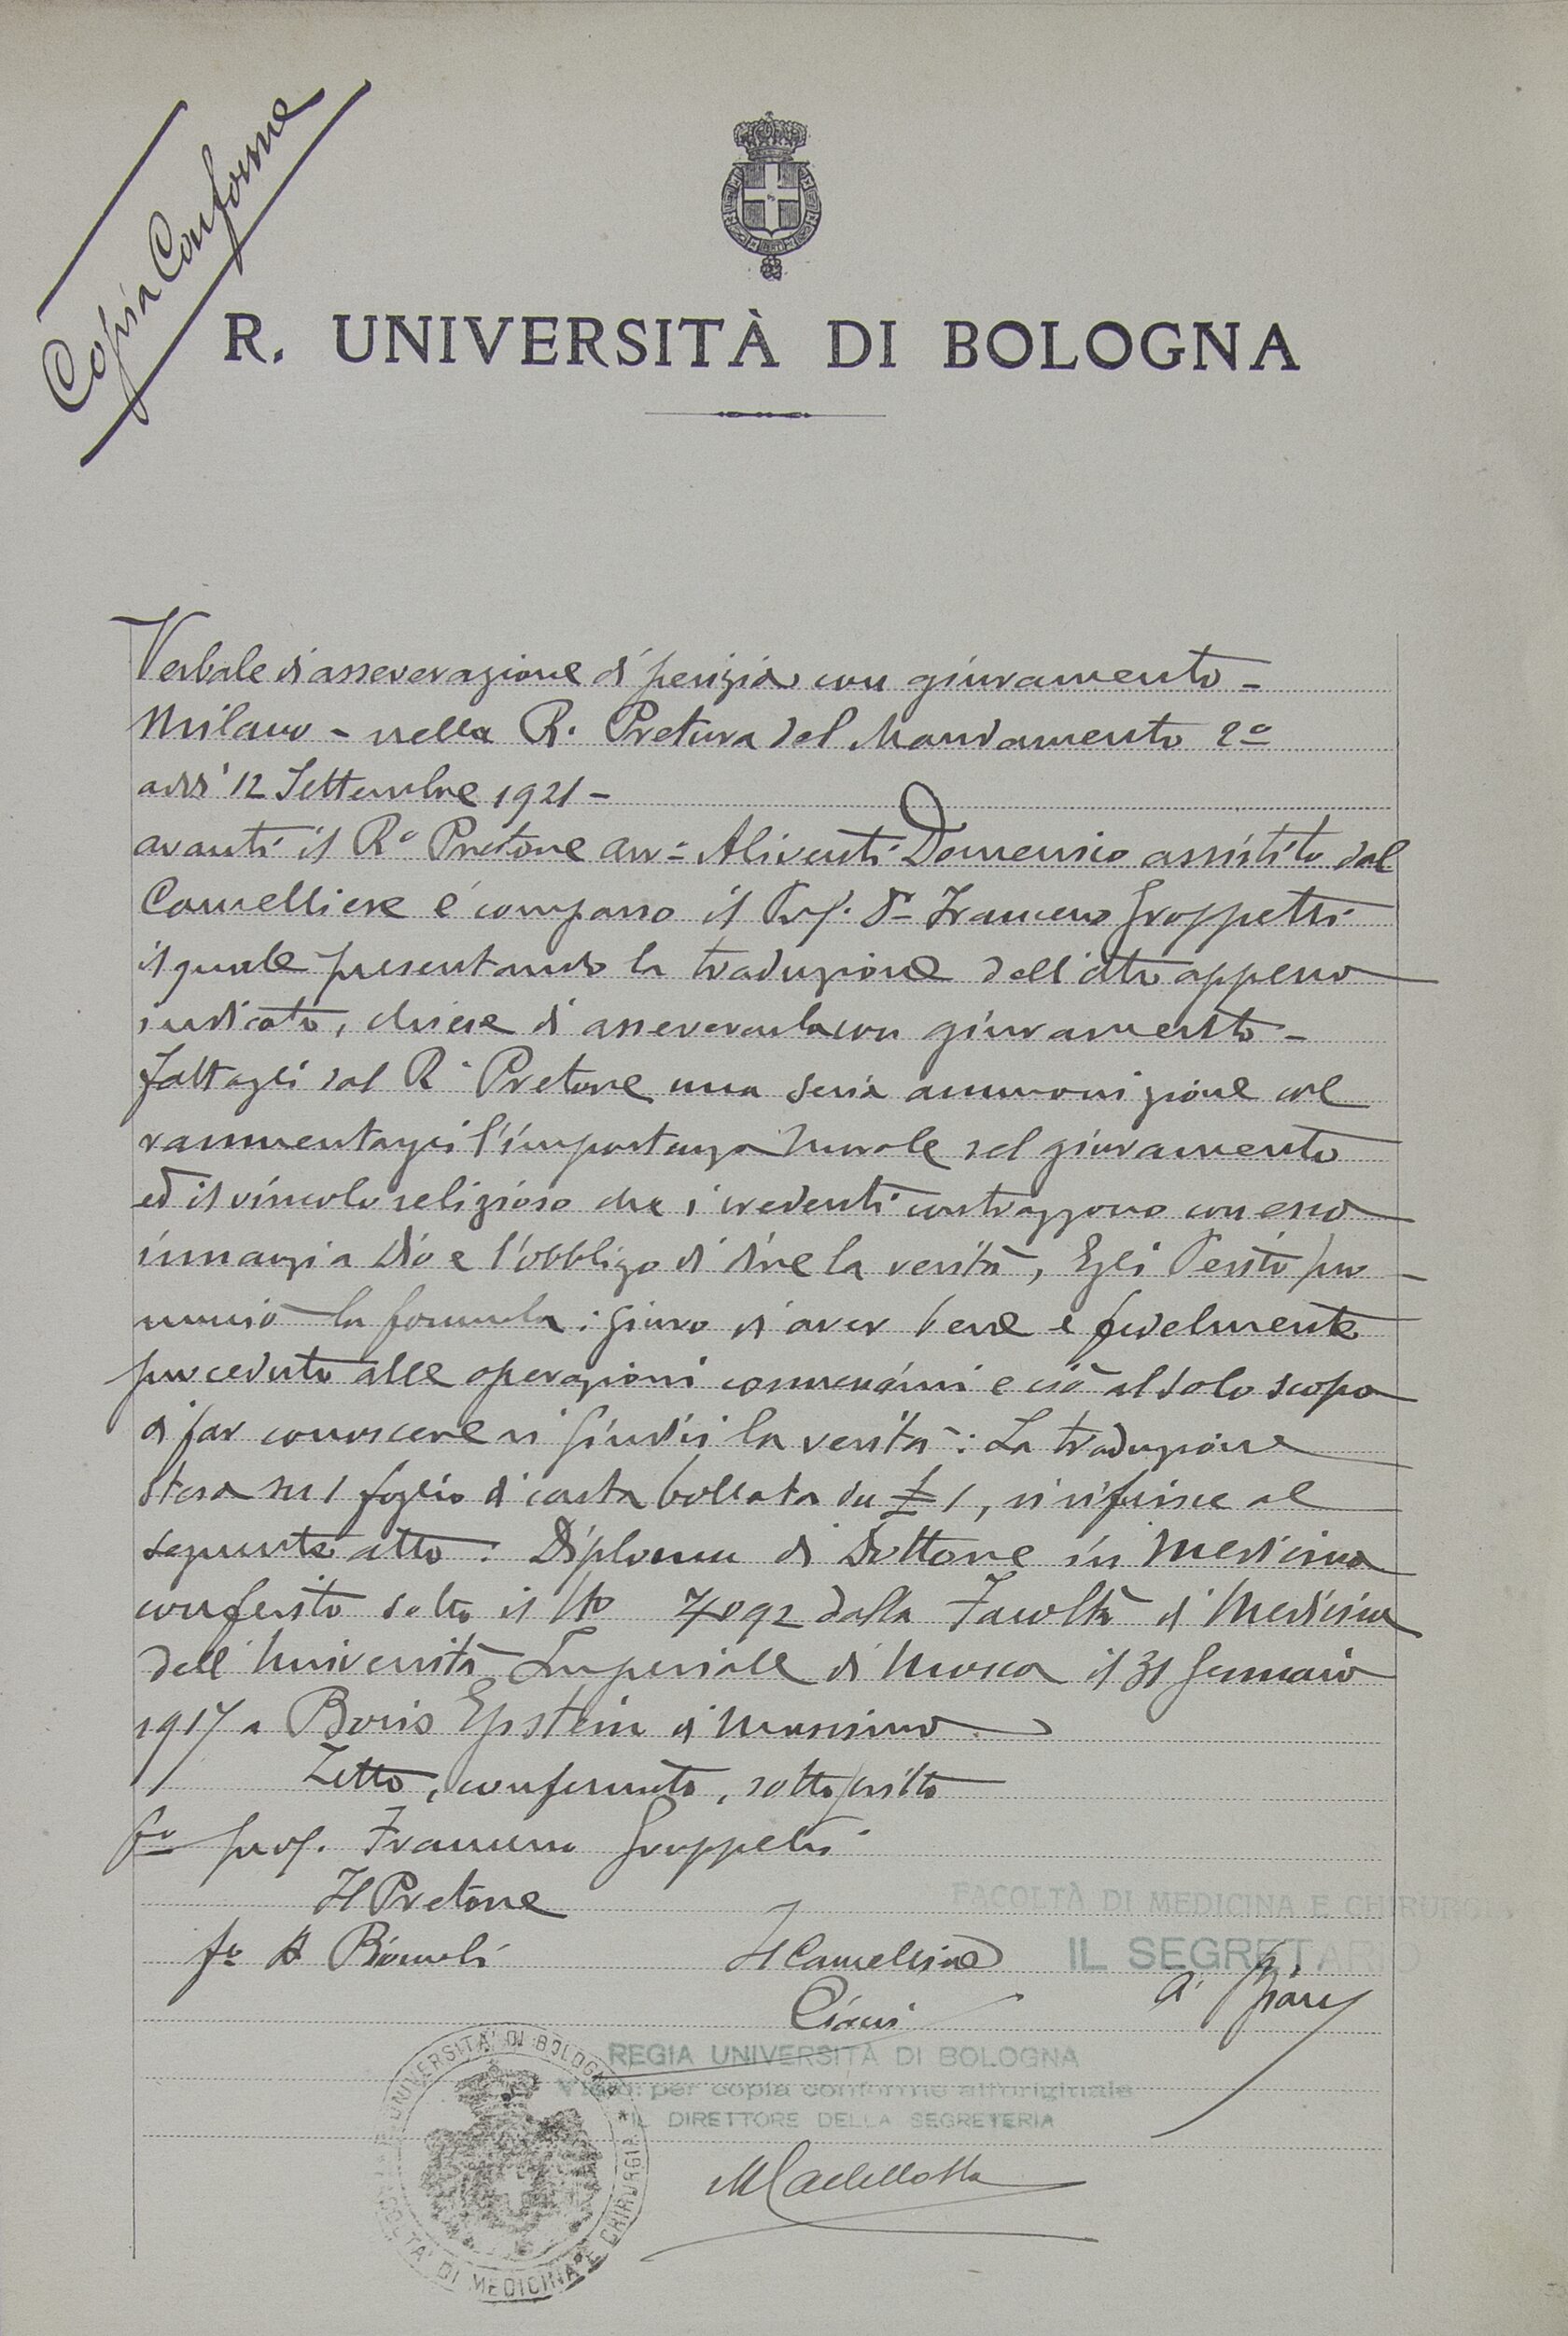 Copia Conforme
R. UNIVERSITÀ DI BOLOGNA
Verbale di asseverazione di perizia con giuramento -
Milano - nella R. Pretura del Mandamento 2º
addì 12 Settembre 1921 -
avanti il Rº Pretore avv. Aliventi Domenico assistito dal
Cancelliere è comparso il Prof. Dr Francesco Groppetti
il quale presentando la traduzione dell'atto appena
indicato, chiese di asseverarla con giuramento -
Fattagli dal R. Pretore una seria ammonizione col
rammentargli l'importanza morale del giuramento
ed il vincolo religioso che i credenti contraggono con esso
innanzi a Dio e l'obbligo di dire la verità, Egli Perito pro
nunciò la formula: giuro di aver bene e fedelmente
proceduto alle operazioni commessimi e ciò al solo scopo
di far conoscere ai Giudici la verità: La traduzione
stesa su 1 foglio di carta bollata da £ 1, si riferisce al
seguente atto: Diploma di Dottore in Medicina
conferito sotto il No 7092 dalla Facoltà di Medicina
dell'Università Imperiale di Mosca il 31 Gennaio
1917 a Boris Epstein di Massimo
Letto, confermato, sottoscritto
fº prof. Francesco Groppetti
Il Pretore
fº
Il Cancelliere
Ciani
FACOLTÀ DI MEDICINA E CHIRURGIA
IL SEGRETARIO
REGIA UNIVERSITÀ DI BOLOGNA
Visto: per copia conforme all'originale
IL DIRETTORE DELLA SEGRETERIA
UNIVERSITA' DI BOLOGNA
FACOLTA' DI MEDICINA E CHIRURGIA